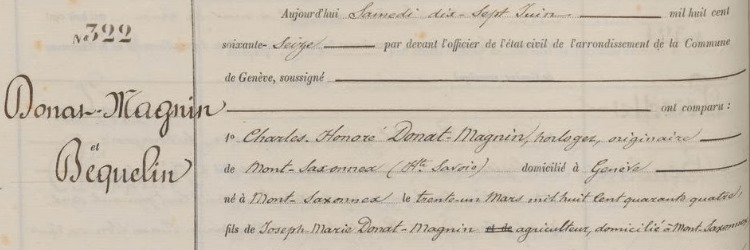 Aujourd'hui Samedi dix-Sept Juin mil huit cent
No 322
soixante-Seize par devant l'officier de l'état civil de l'arrondissement de la Commune
de Genève, soussigné
Donat-Magnin
ont comparu :
1o Charles-Honoré Donat-Magnin, horloger, originaire
et
Béquelin
de Mont-Saxonnex (Hte Savoie) domicilié à Genève
né à Mont-Saxonnex le trente-un Mars mil huit cent quarante quatre,
fils de Joseph-Marie Donat-Magnin et de agriculteur, domicilié à Mont-Saxonnex